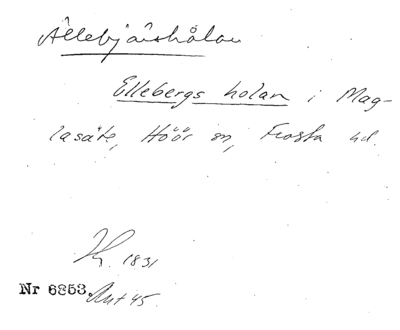 Ällebjärshålan
Ellebergs holan i Mag-
lasäte, Höör sn, Frosta hd.
1831
Nr 6853. Ant 45